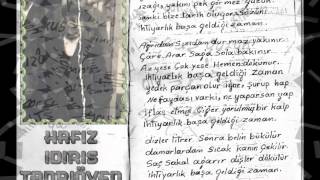 uzağı, yakını pek görmez gözün
sanki bize tarih oluyor
ihtiyarlık başa geldiği zaman.
Ağrıdan Sızıdan durmaz yakınır.
Çare Arar Sapa Sola bakınır
Az yese çok yese Hemen dokunur.
ihtiyarlık başa geldiği zaman
yedek parçan olur iğner, şurup hap
Ne faydası var ki, ne yaparsan yap
iflas etmiş Ciğer yorulmuş bir kalp
ihtiyarlık başa geldiği zaman.
dizler titrer Sonra belin bükülür
damarlardan Sıcak kanın Çekilir
Saç Sakal ağarır dişler dökülür
ihtiyarlık başa geldiği zaman.
HAFIZ
IDIRIS
TANRIÖVEN